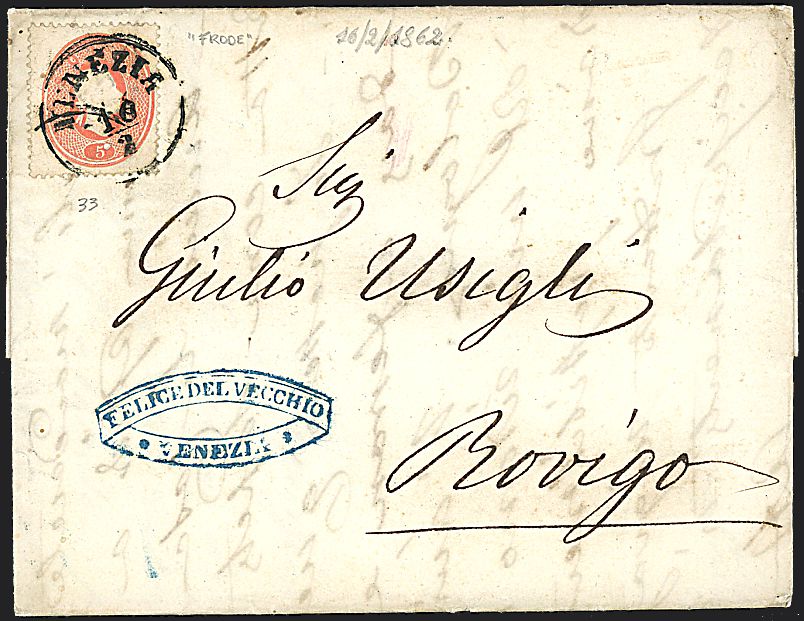 "FRODE"
16/2/1862
VENEZIA
16
2
5
33
Sig
Giulio Usigli
Rovigo
FELICE DEL VECCHIO
VENEZIA